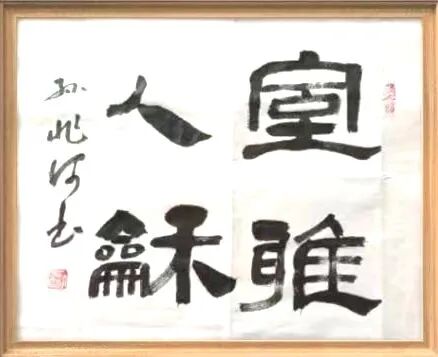 室雅
人龢
孙兆河书